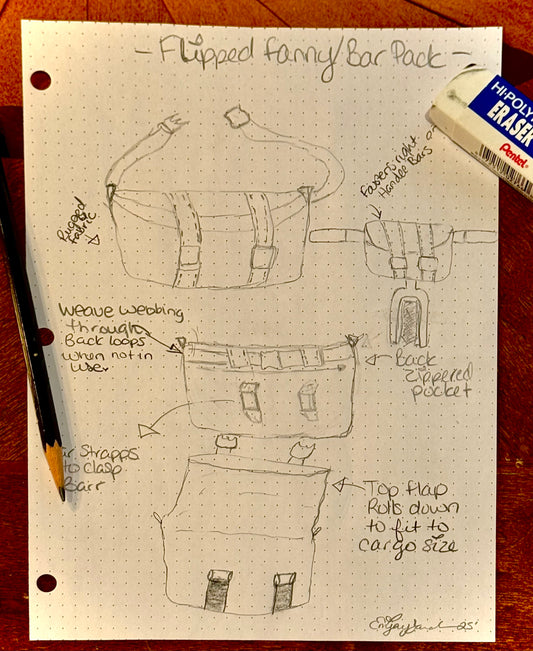 - Flipped Fanny/Bar Pack -
HI-POLY
ERASER
Pentel
Rugged
Fabric
Fastens right
Handle Bars
Weave webbing
through
Back loops
when not in
use.
Back
zippered
pocket
Strapps
to clasp
Barr
Top flap
Rolls down
to fit to
cargo size
25'